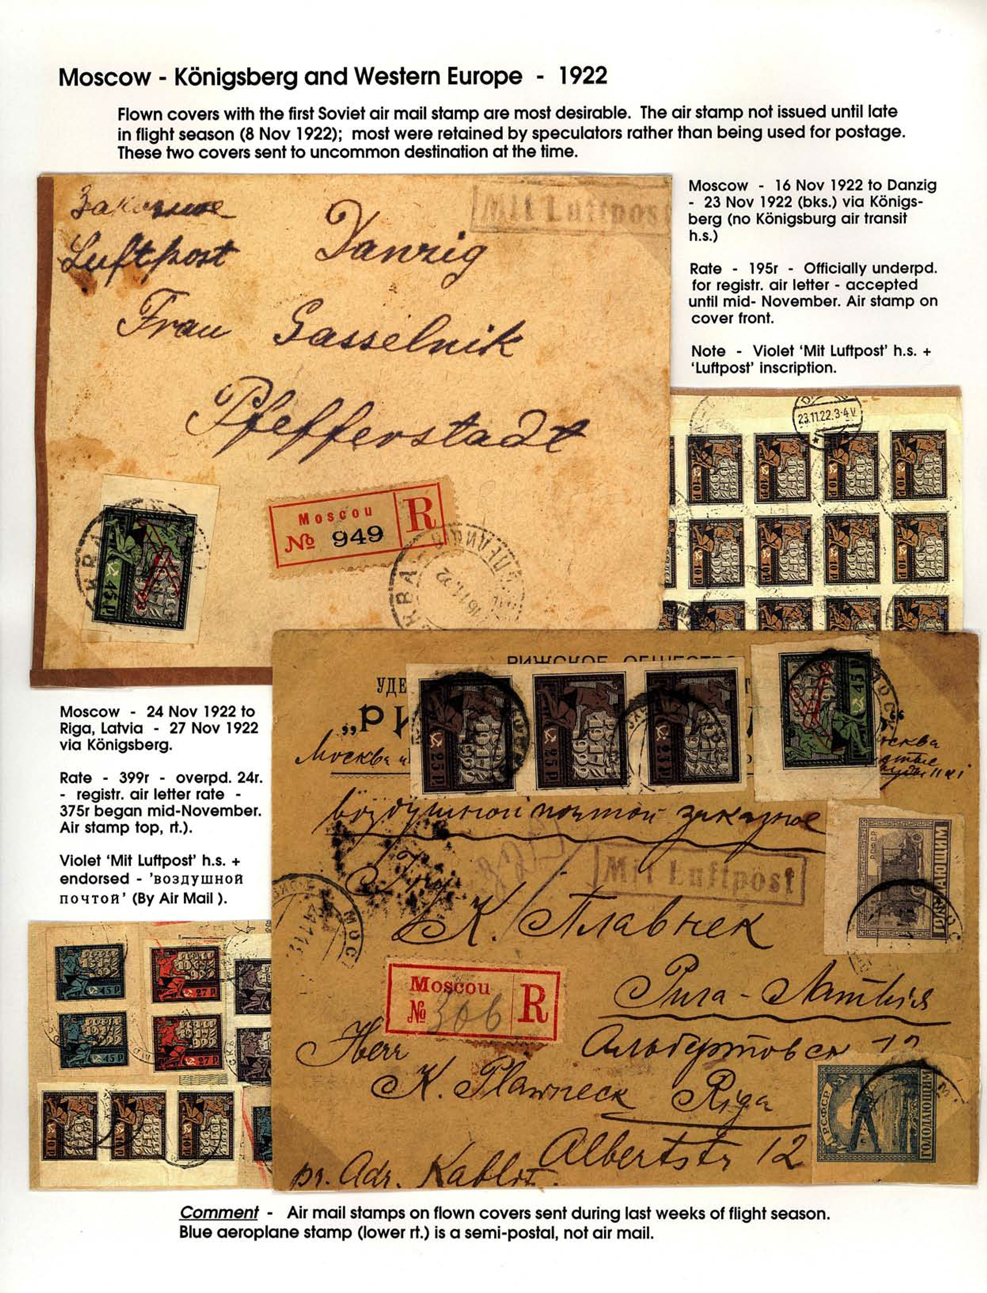 Moscow - Königsberg and Western Europe - 1922
Flown covers with the first Soviet air mail stamp are most desirable. The air stamp not issued until late
in flight season (8 Nov 1922); most were retained by speculators rather than being used for postage.
These two covers sent to uncommon destination at the time.
Moscow - 16 Nov 1922 to Danzig
- 23 Nov 1922 (bks.) via Königs-
berg (no Königsburg air transit
h.s.)
Rate - 195r - Officially underpd.
for registr. air letter - accepted
until mid- November. Air stamp on
cover front.
Note - Violet 'Mit Luftpost' h.s. +
'Luftpost' inscription.
Заказное
Luftpost
Mit Luftpost
Danzig
Frau Gasselnik
Pfefferstadt
Moscou
№ 949
R
45 Р
16.11.22
23.11.22.3-4V.
10 Р
Moscow - 24 Nov 1922 to
Riga, Latvia - 27 Nov 1922
via Königsberg.
Rate - 399r - overpd. 24r.
- registr. air letter rate -
375r began mid-November.
Air stamp top, rt.).
Violet 'Mit Luftpost' h.s. +
endorsed - 'воздушной
почтой' (By Air Mail ).
РИЖСКОЕ ОБЩЕСТВО
25 Р
25 Р
25 Р
45 Р
Москва
воздушной почтой заказное
Mit Luftpost
К. Плавнек
Moscou
№ 366
R
Рига - Латвія
Альбертовск 12
Herr
K. Plawneck Riga
Albertstr 12
pr. Adr.
ГОЛОДАЮЩИМ
Р.С.Ф.С.Р.
ГОЛОДАЮЩИМ
45 Р
27 Р
45 Р
27 Р
10 Р
10 Р
10 Р
Comment - Air mail stamps on flown covers sent during last weeks of flight season.
Blue aeroplane stamp (lower rt.) is a semi-postal, not air mail.